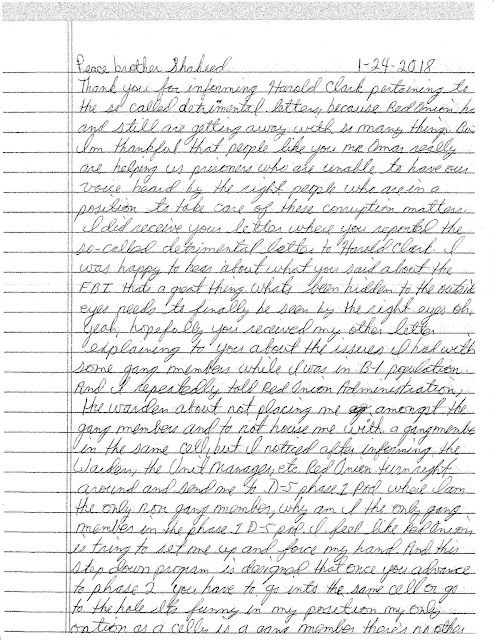 Peace brother Shaheed. 1-24-2018
Thank you for informing Harold Clark pertaining to
the so called detrimental letters, because Red Onion ha
and still are getting away with so many things. But
I'm thankful that people like you mr Omar really
are helping us prisoners who are unable to have our
voice heard by the right people who are in a
position to take care of these corruption matters.
I did receive your letter where you reported the
so-called detrimental letter to Harold Clark. I
was happy to hear about what you said about the
FBI thats a great thing whats been hidden to the outside
eyes needs to finally be seen by the right eyes oh,
yeah, hopefully you received my other letter
explaining to you about the issues I had with
some gang members while I was in B-1 population.
And I repeatedly told Red Onion Administration,
the warden about not placing me amongst the
gang members and to not house me with a gang membe
in the same cell, but I noticed after informing the
Warden, the Unit Manager, etc Red Onion turn right
around and send me to D-5 phase 1 Pod where I am
the only non gang member, why am I the only gang
member in the phase 1 D-5 pod. I feel like Red Onion
is tring to set me up and force my hand And this
step down program is designed that once you advance
to phase 2 you have to go into the same cell or go
to the hole its funny in my position my only
option as a celly is a gang member there's no other